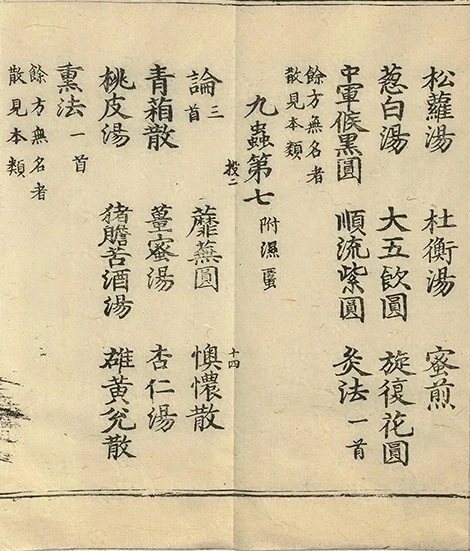 松蘿湯 杜衡湯 蜜煎
葱白湯 大五飲圓 旋復花圓
中軍候黑圓 順流紫圓 灸法一首
餘方無名者
散見本類
九蟲第七 附濕䘌
投二 十四
論三首 蘼蕪圓 懊憹散
青葙散 薑蜜湯 杏仁湯
桃皮湯 猪膽苦酒湯 雄黃兊散
熏法一首
餘方無名者
散見本類